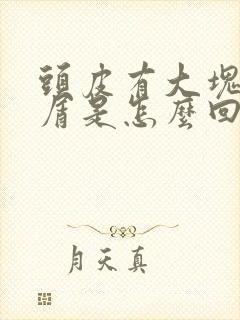 頭皮有大塊
屑是怎麼回
月天真